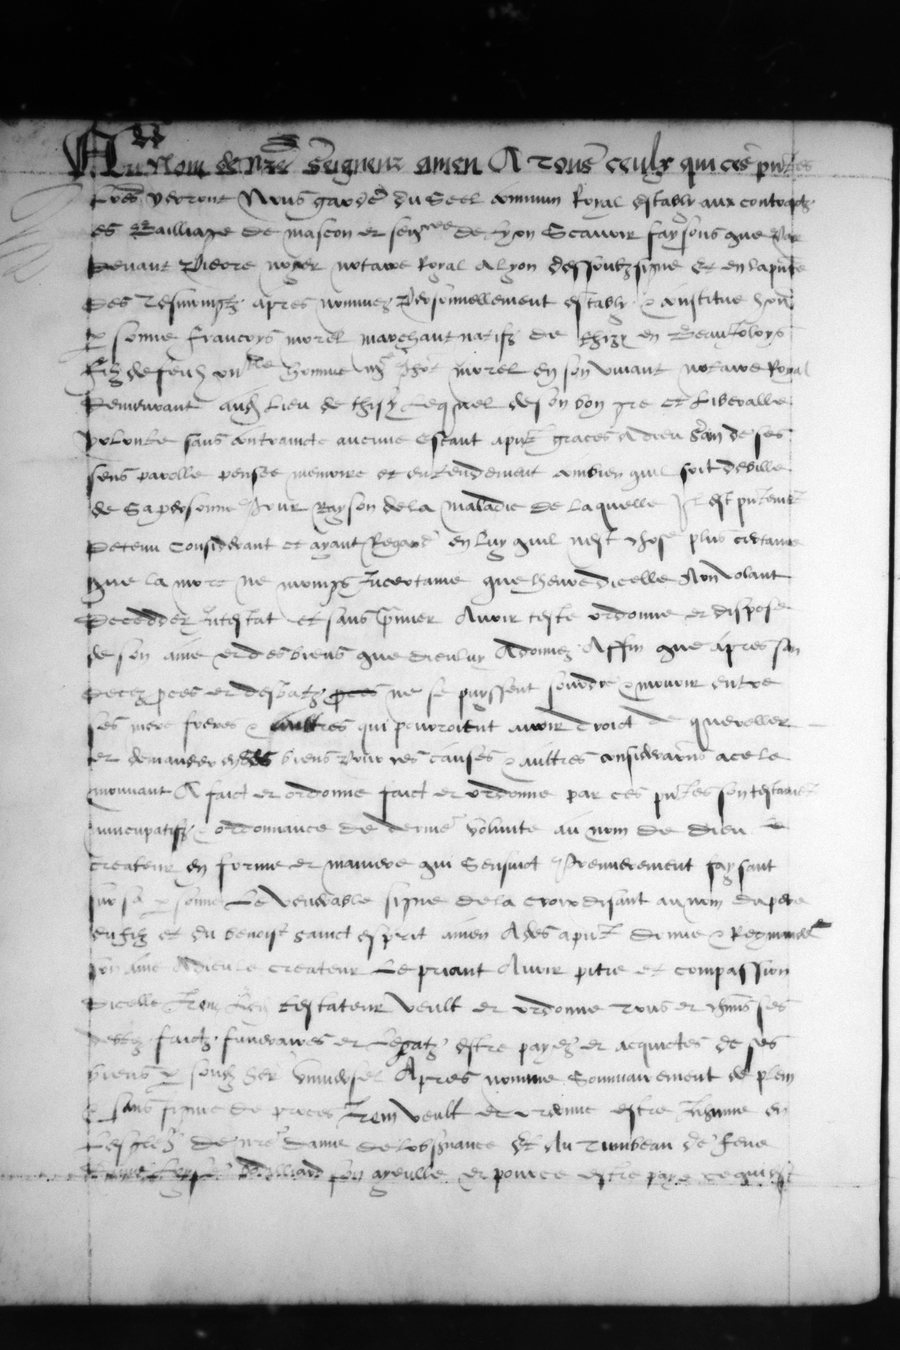 Au Nom de nre Seigneur amen A tous ceulx qui ces pntes
Lres verront Nous garde du Seel commun Royal estably aux contractz
es Bailliage de mascon et sen^cee de Lyon Scavoir faysons que Par
Devant Pierre notaire Royal a Lyon dessoubz signe Et en la pnce
Des tesmoingtz apres nommez Personnellement estably & constitue hon
p sonne francoys morel marchant natifz de thizy en Beaujoloys
filz de feu hon^ble homme m^e morel en son vivant notaire Royal
Demeurant aud Lieu de thizy Lequel de son bon gre et Liberalle
volunte sans contraincte aucune estant apnt graces a dieu sain de ses
sens parolle pensee memoire et entendement combien quil soit debille
de sa personne Pour Rayson de la maladie de laquelle Il est pntement
Detenu Considerant et ayant Regard en luy quil nest chose plus certaine
que la mort ne moings Incertaine que lheure dicelle Non volant
Decedder Intestat et sans pmier Avoir teste ordonne et dispose
de son ame et des biens que dieu luy A donnez Affin que apres son
Decez proces et debatz ne se puyssent sourdre & mouvoir entre
ses mere freres & aultres qui pourroient avoir droict de quereller
et demander esd biens Pour ces causes & aultres considerations a ce le
mouvant A faict et ordonne faict et ordonne par ces pntes son testament
nuncupatifz & ordonnance de derniere volunte au nom de dieu le
createur en forme et maniere qui Sensuict Premierement faysant
sur sa p sonne Le Venerable signe de la croix disant au nom du pere
du filz et du benoist sainct esprit amen A des apnt donne & Recommande
son ame A dieu le createur Le priant Avoir pitie et compassion
Dicelle Item led testateur veult et ordonne tous et chuns ses
debtz faictz funeraires et legatz estre payez et acquictes de ses
biens p son her universel Apres nomme Sommairement de plein
& sans figure de proces Item veult et ordonne estre Inhume en
Lesglize de nre dame de lobservance Et Au tumbeau de feue
son ayeulle et pour ce estre paye ce qui est